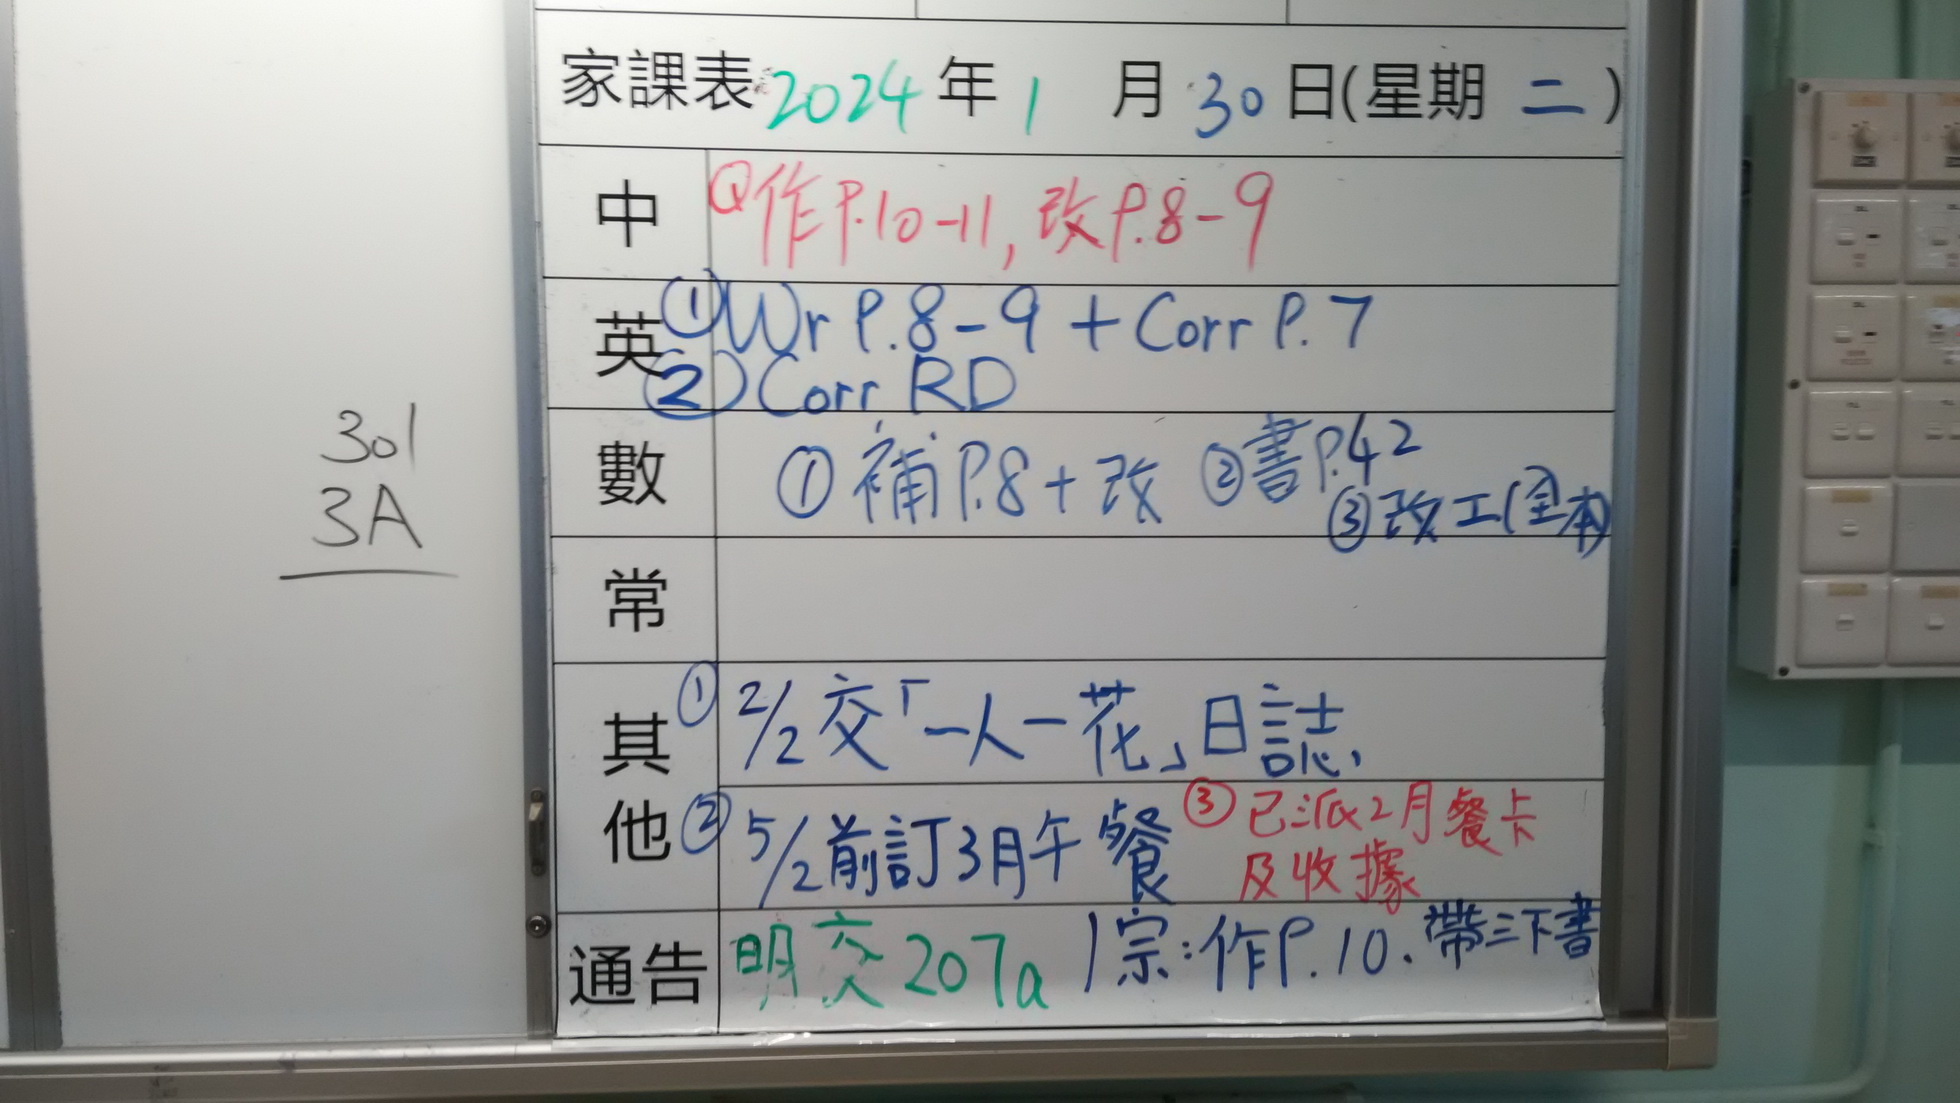 301
3A
家課表 2024 年 1 月 30 日(星期 二 )
中 作P.10-11, 改P.8-9
英 ①Wr P.8-9 + Corr P.7
② Corr RD
數 ① 補P.8 + 改 ②書P.42
③改工(全本)
常
其他 ① 2/2 交「一人一花」日誌,
② 5/2前訂3月午餐 ③ 已派2月餐卡
及收據
通告 明交 207a / 宗:作P.10. 帶三下書